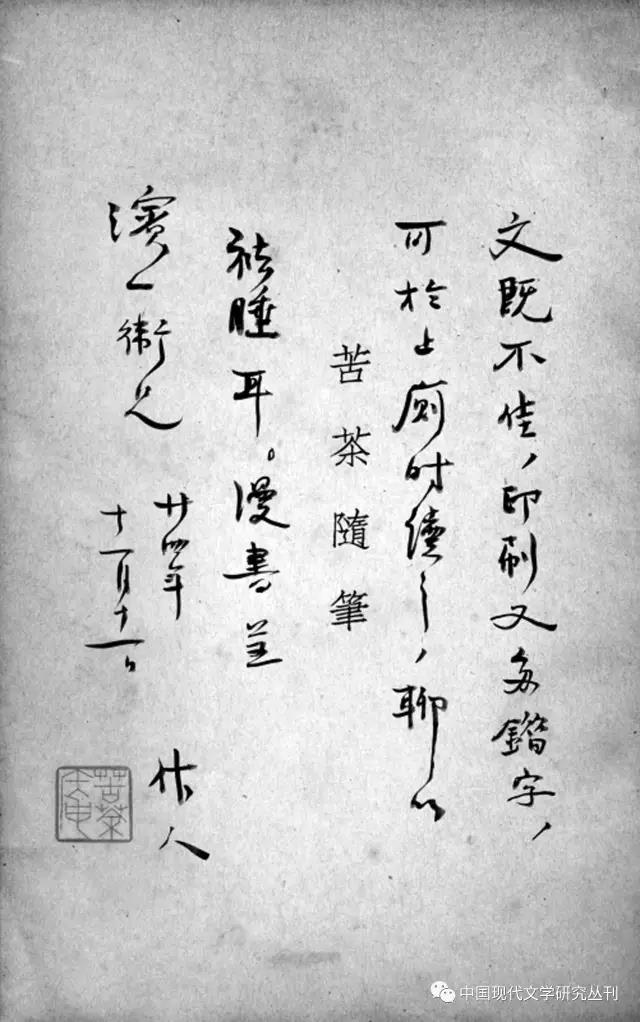 文既不佳，印刷又多錯字，
可於上廁时讀之，聊以
苦茶隨筆
祛睡耳。漫書呈
濱一衛兄
廿四年
十一月十一日
作人
苦茶
中国现代文学研究丛刊